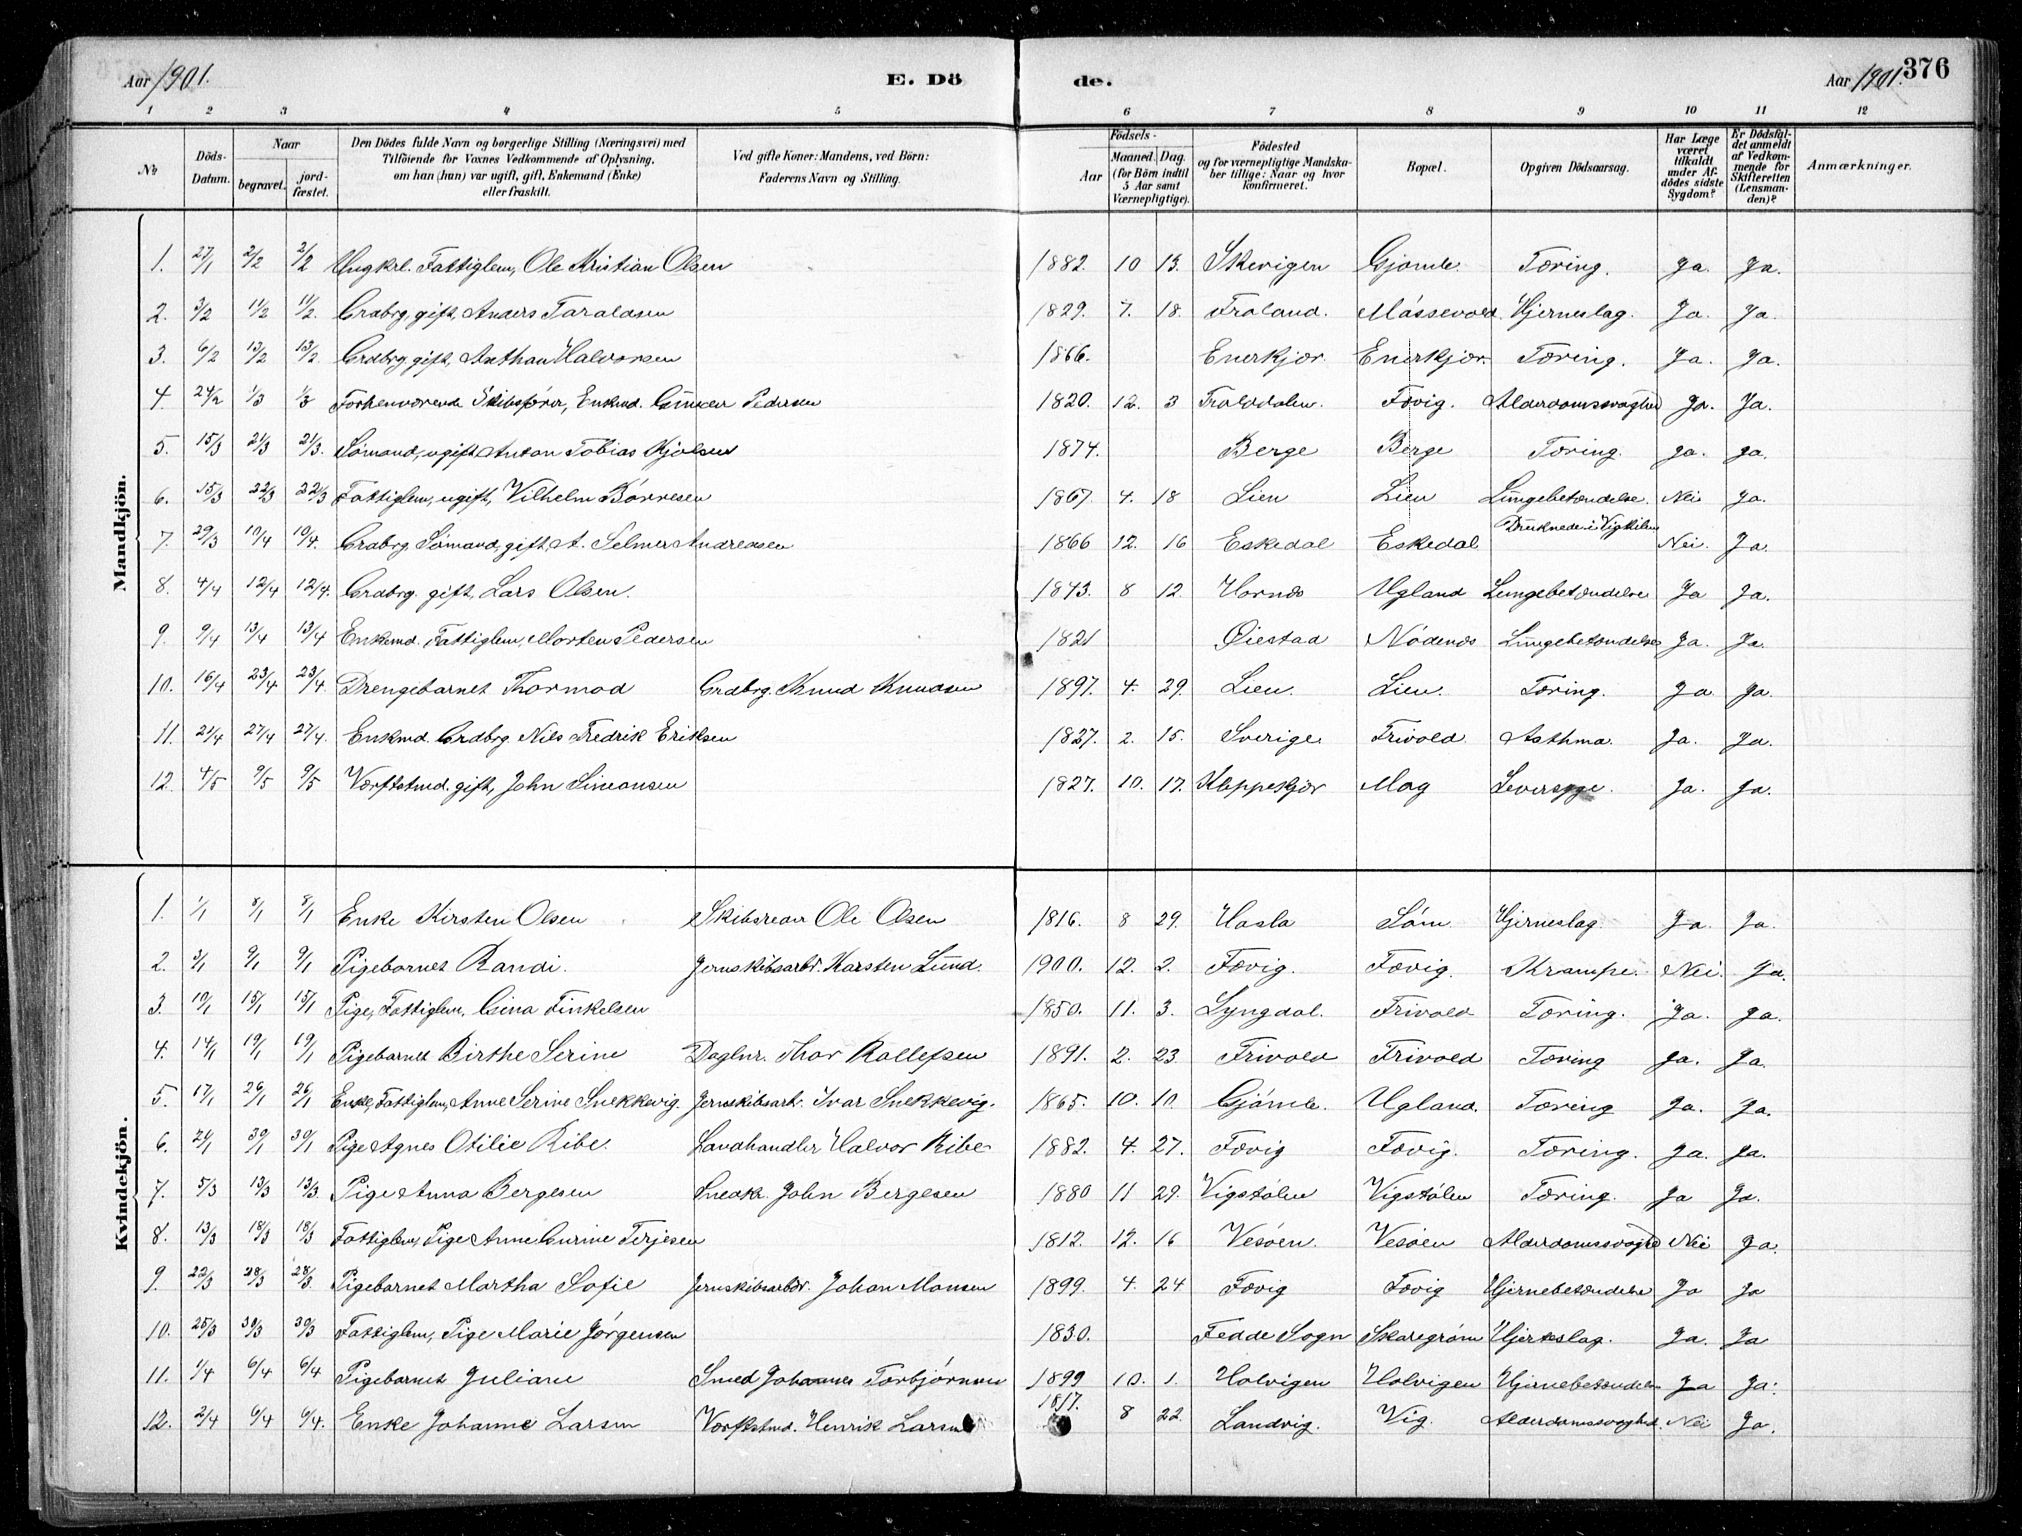 Aar 1901.
E. Dö
de.
Aar 1901.
376
1 2 3 4 5 6 7 8 9 10 11 12
No
Döds-Datum.
Naar
begravet.
jordfæstet.
Den Dödes fulde Navn og borgerlige Stilling (Næringsvei) med Tilföiende for Voxnes Vedkommende af Oplysning, om han (hun) var ugift, gift, Enkemand (Enke) eller fraskilt.
Ved gifte Koner: Mandens, ved Börn: Faderens Navn og Stilling.
Födsels-
Aar
Maaned. Dag.
(for Börn indtil 5 Aar samt Værnepligtige).
Födested og for værnepligtige Mandskaber tillige: Naar og hvor konfirmeret.
Bopæl.
Opgiven Dödsaarsag.
Har Læge været tilkaldt under Afdödes sidste Sygdom?
Er Dödsfaldet anmeldt af Vedkommende for Skifteretten (Lensmanden)?
Anmærkninger.
Mandkjön.
1. 27/1 2/2 2/2 Ungkrl. Fattiglem, Ole Kristian Olsen 1882. 10 13. Skevigen Gjømle. Tæring. Ja. Ja.
2. 3/2 11/2 11/2. Grdbrg, gift, Anders Taraldsen 1829. 7. 18. Froland. Måssevold. Hjerneslag. Ja. Ja.
3. 6/2 13/2 13/2. Grdbrg gift, Anthan Halvorsen 1866. Enerkjær. Enerkjær. Tæring. Ja. Ja.
4. 24/2 1/3 1/3 Forhenværende Skibsfører, Enkmd. Gunner Pedersen 1820. 12. 3 Traldalen. Fævig. Alderdomssvaghed Ja. Ja.
5. 15/3 21/3 21/3. Sømand, ugift, Anton Tobias Kjølsen 1874. Berge Berge Tæring. Ja. Ja.
6. 15/3 22/3 22/3 Fattiglem, ugift, Vilhelm Børresen 1867. 4. 18 Lien Lien Lungebetændelse. Nei Ja.
7. 29/3 10/4 10/4. Grdbrg Sømand, gift, A. Selmer Andreasen 1866 12. 16 Eskedal Eskedal Druknede i Vigkilen Nei. Ja.
8. 4/4 12/4 12/4. Grdbrg. gift, Lars Olsen. 1843. 8 12. Hornås Ugland Lungebetændelse Ja Ja.
9. 9/4 13/4 13/4 Enkemd. Fattiglem, Morten Pedersen 1821 Øiestad Nødenås Lungebetændelse Ja. Ja.
10. 16/4 23/4 23/4. Drengebarnet Thormod Grdbrg. Knud Knudsen 1897. 4. 29. Lien. Lien. Tæring. Ja Ja.
11. 21/4 27/4 27/4. Enkmd. Grdbrg. Nils Fredrik Eriksen 1827. 2. 15. Sverige. Frivold. Asthma. Ja. Ja.
12. 4/5 9/5 9/5 Værftstmd. gift, John Simonsen 1827. 10. 17. Kleppekjær Mog Leversyge. Ja. Ja.
Kvindekjön.
1. 1/1 8/1 8/1 Enke Kirsten Olsen Skibsreder Ole Olsen 1816. 8 29. Hasla Søm Hjerneslag. Ja. Ja.
2. 3/1 9/1 9/1 Pigebarnet Randi. Jernskibsarbr. Karsten Lund. 1900. 12. 2. Fævig. Fævig. Krampe. Nei. Ja.
3. 10/1 15/1 15/1 Pige, Fattiglem, Gina Finkelsen 1850. 11. 3. Lyngdal. Frivold Tæring. Ja. Ja.
4. 14/1 19/1 19/1 Pigebarnet Birthe Serine Daglnr. Thor Rollefsen 1891. 2. 23. Frivold Frivold Tæring Ja. Ja.
5. 17/1 26/1 26/1 Enke, Fattiglem, Anne Serine Snekkevig. Jernskibsarb. Ivar Snekkevig. 1865. 10. 10. Gjømle. Ugland. Tæring Ja. Ja.
6. 24/1 30/1 30/1 Pige Agnes Otilie Ribe. Landhandler Halvor Ribe 1882. 4. 27. Fævig Fævig. Tæring. Ja. Ja.
7. 5/3 13/3 13/3. Pige Anna Bergesen Snedkr. John Bergesen 1880 11 29. Vigstølen Vigstølen Tæring. Ja Ja.
8. 13/3 18/3 18/3 Fattiglem, Pige Anne Gurine Terjesen 1812. 12. 16 Vesøen. Vesøen Alderdomssvaghd Nei Ja.
9. 22/3 28/3 28/3. Pigebarnet Martha Sofie Jernskibsarbdr. Johan Monsen 1899. 4. 24 Fævig Fævig Hjernebetændelse Ja Ja
10. 25/3 30/3 30/3 Fattiglem, Pige Marie Jørgensen 1830. Fedde Sogn Skaregrøm Hjerteslag. Ja. Ja
11. 1/4 6/4 6/4 Pigebarnet Juliane Smed Johannes Torbjørnsen 1899 10. 1. Holvigen Holvigen Hjernebetændelse Ja Ja.
12. 2/4 6/4 6/4. Enke Johanne Larsen Værftstmd. Henrik Larsen 1817. 8 22. Landvig. Vig. Alderdomssvaghd. Nei Ja.